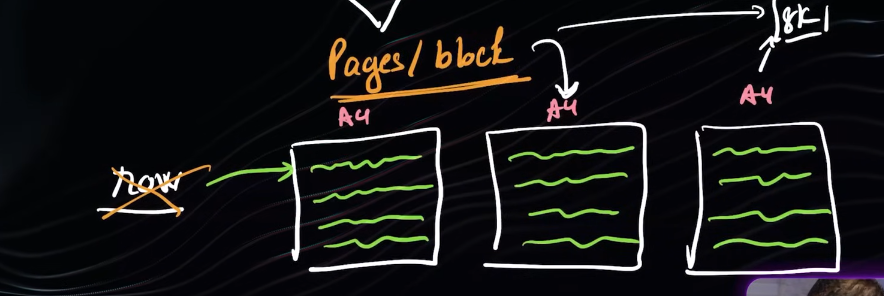 8K
Pages/block
A4 A4 A4
row